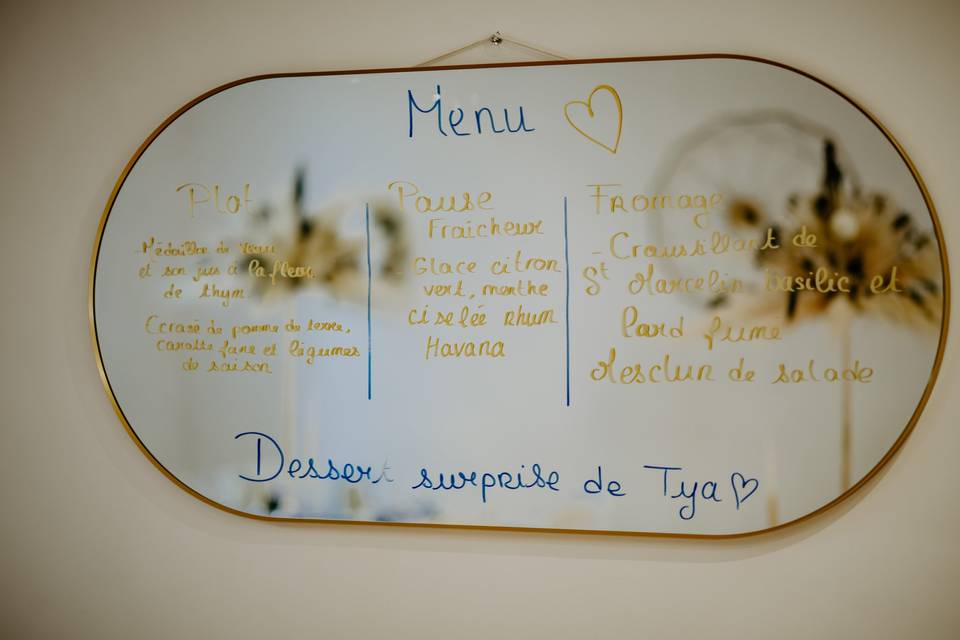 Menu
Plat
- Médaillon de veau
et son jus à la fleur
de thym
Ecrasé de pomme de terre,
carotte fane et légumes
de saison
Pause
Fraicheur
- Glace citron
vert, menthe
ciselée Rhum
Havana
Fromage
- Croustillant de
St Marcelin basilic et
lard fumé
Mesclun de salade
Dessert surprise de Tya